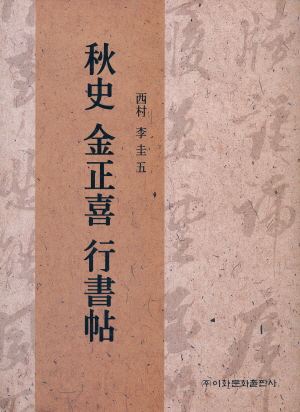 秋史 金正喜 行書帖
西村 李圭五
㈜이화문화출판사